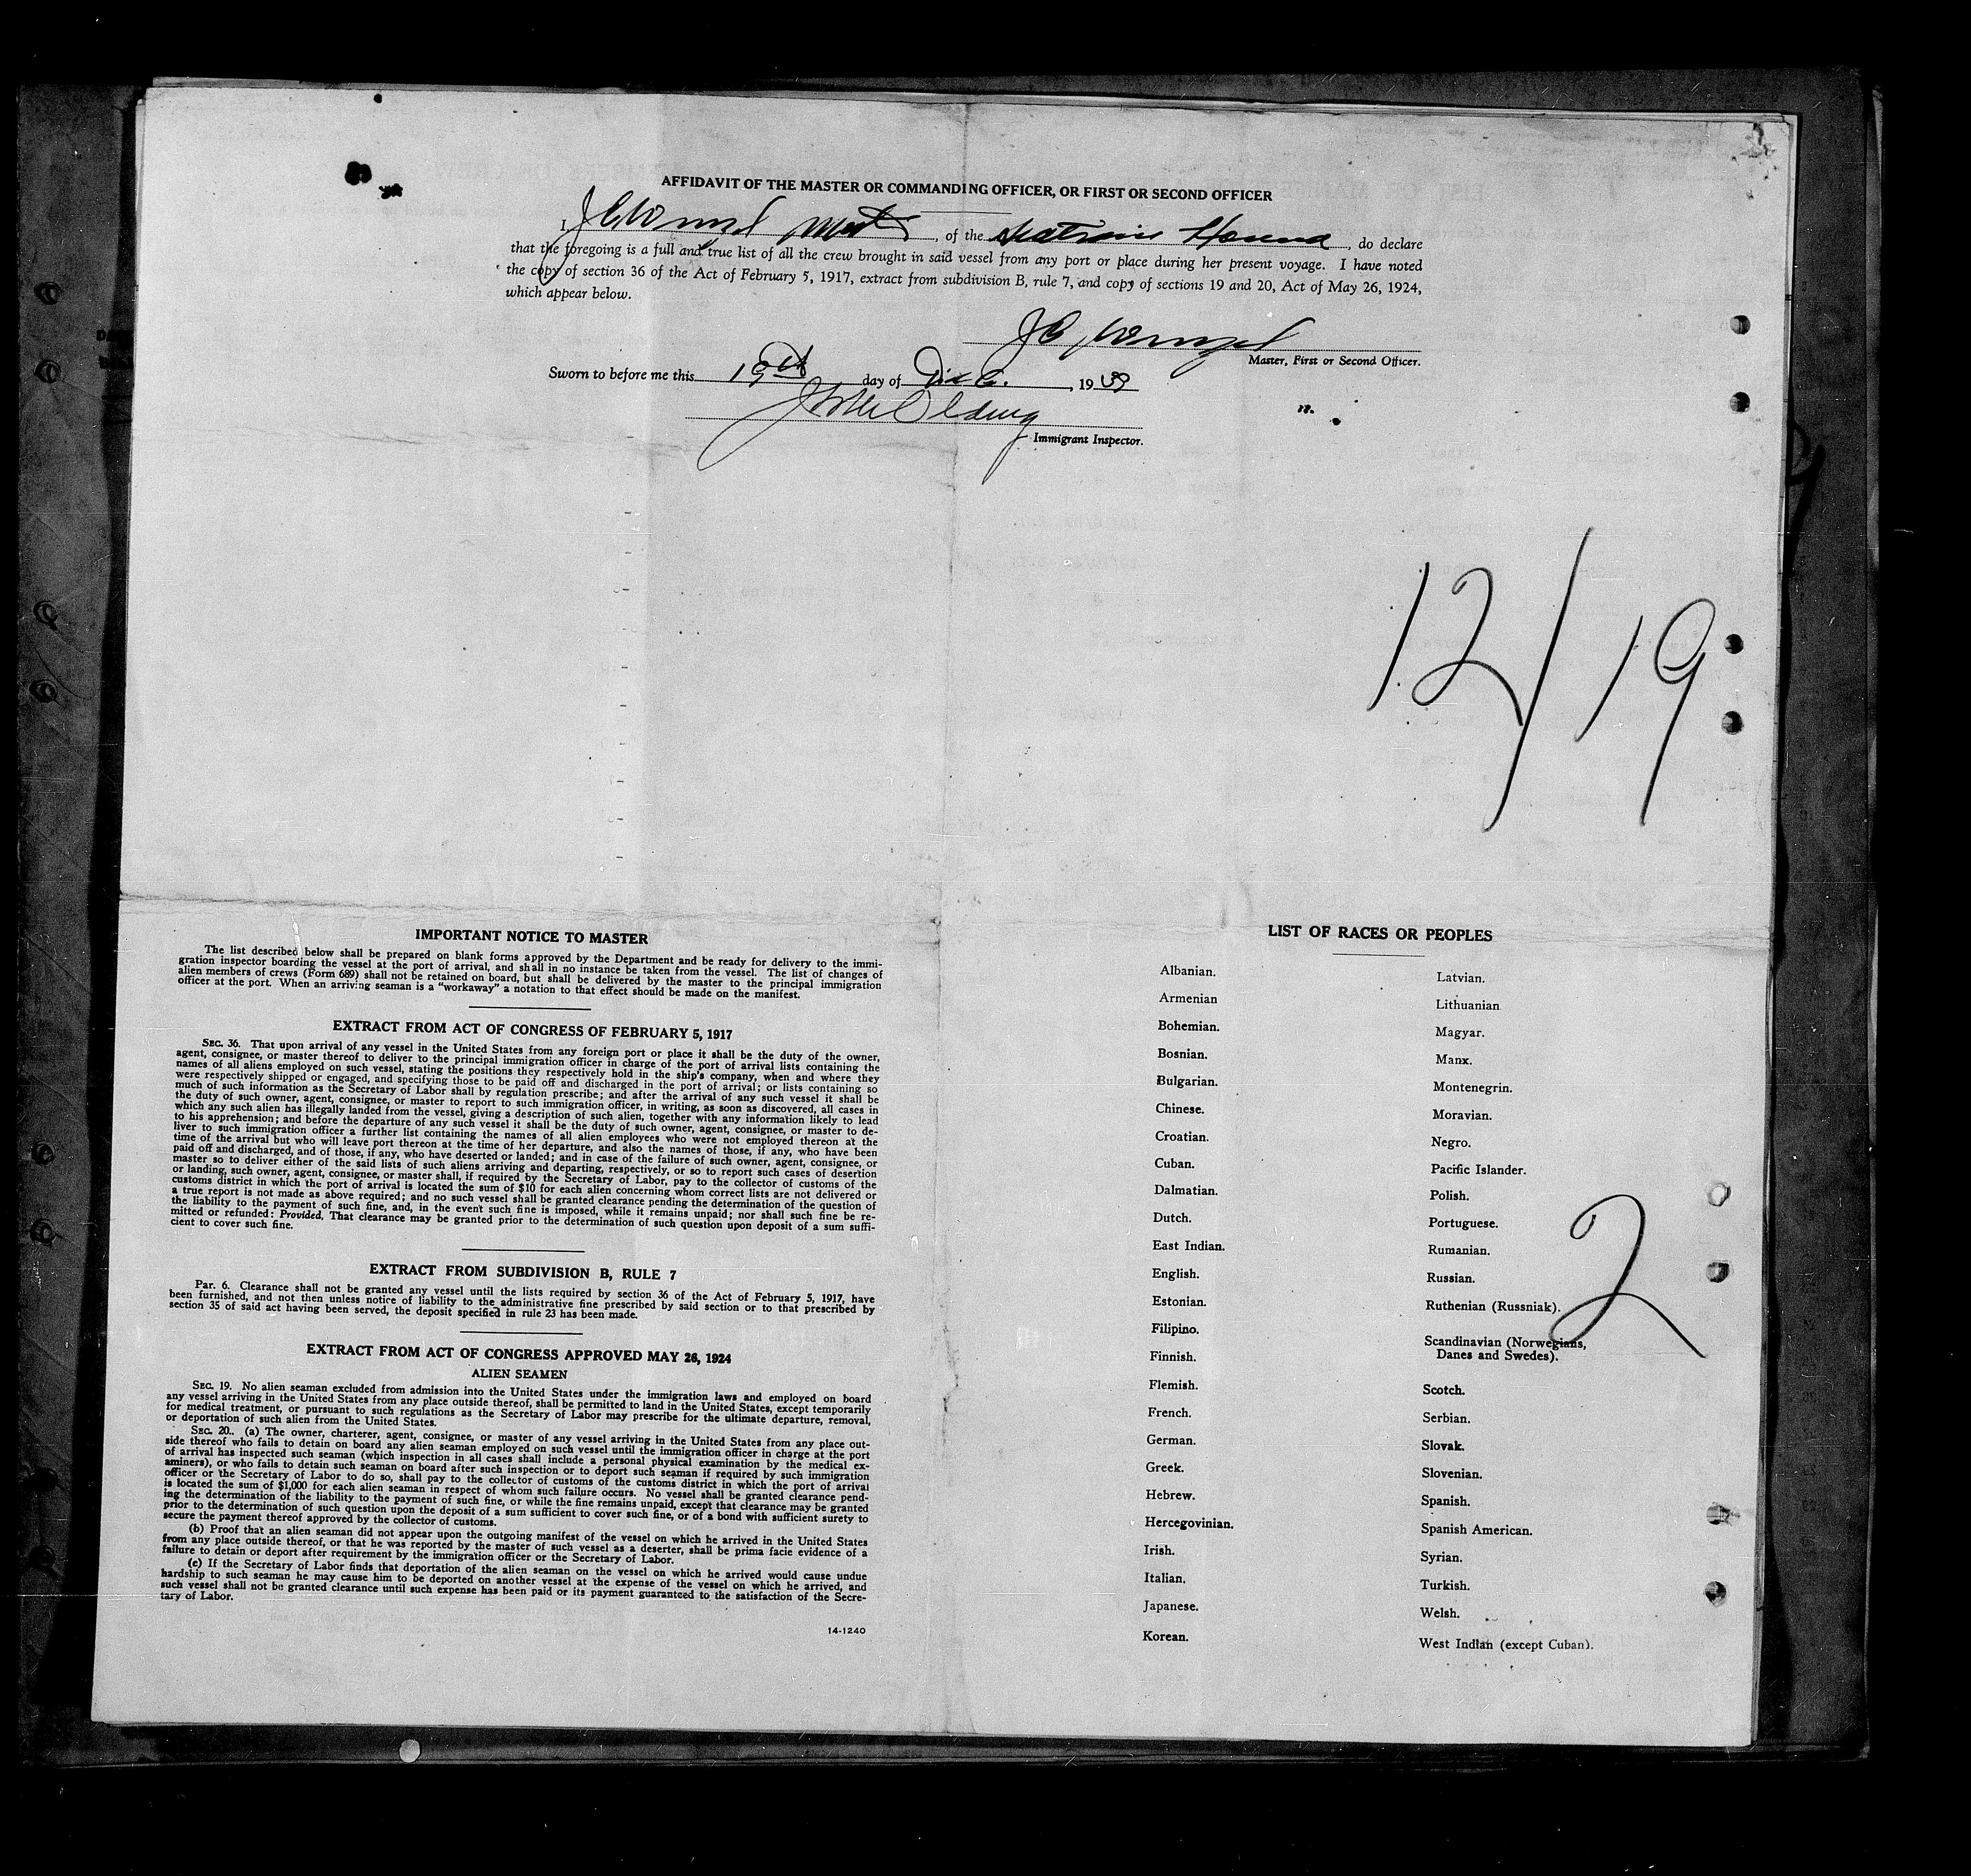 AFFIDAVIT OF THE MASTER OR COMMANDING OFFICER, OR FIRST OR SECOND OFFICER
I, , of the , do declare
that the foregoing is a full and true list of all the crew brought in said vessel from any port or place during her present voyage. I have noted
the copy of section 36 of the Act of February 5, 1917, extract from subdivision B, rule 7, and copy of sections 19 and 20, Act of May 26, 1924,
which appear below.
Master, First or Second Officer.
Sworn to before me this 19th day of Dec., 1939
Immigrant Inspector.
12/19
IMPORTANT NOTICE TO MASTER
The list described below shall be prepared on blank forms approved by the Department and be ready for delivery to the immi-
gration inspector boarding the vessel at the port of arrival, and shall in no instance be taken from the vessel. The list of changes of
alien members of crews (Form 689) shall not be retained on board, but shall be delivered by the master to the principal immigration
officer at the port. When an arriving seaman is a "workaway" a notation to that effect should be made on the manifest.
EXTRACT FROM ACT OF CONGRESS OF FEBRUARY 5, 1917
SEC. 36. That upon arrival of any vessel in the United States from any foreign port or place it shall be the duty of the owner,
agent, consignee, or master thereof to deliver to the principal immigration officer in charge of the port of arrival lists containing the
names of all aliens employed on such vessel, stating the positions they respectively hold in the ship's company, when and where they
were respectively shipped or engaged, and specifying those to be paid off and discharged in the port of arrival; or lists containing so
much of such information as the Secretary of Labor shall by regulation prescribe; and after the arrival of any such vessel it shall be
the duty of such owner, agent, consignee, or master to report to such immigration officer, in writing, as soon as discovered, all cases in
which any such alien has illegally landed from the vessel, giving a description of such alien, together with any information likely to lead
to his apprehension; and before the departure of any such vessel it shall be the duty of such owner, agent, consignee, or master to de-
liver to such immigration officer a further list containing the names of all alien employees who were not employed thereon at the
time of the arrival but who will leave port thereon at the time of her departure, and also the names of those, if any, who have been
paid off and discharged, and of those, if any, who have deserted or landed; and in case of the failure of such owner, agent, consignee, or
master so to deliver either of the said lists of such aliens arriving and departing, respectively, or so to report such cases of desertion
or landing, such owner, agent, consignee, or master shall, if required by the Secretary of Labor, pay to the collector of customs of the
customs district in which the port of arrival is located the sum of $10 for each alien concerning whom correct lists are not delivered or
a true report is not made as above required; and no such vessel shall be granted clearance pending the determination of the question of
the liability to the payment of such fine, and, in the event such fine is imposed, while it remains unpaid; nor shall such fine be re-
mitted or refunded: Provided, That clearance may be granted prior to the determination of such question upon deposit of a sum suffi-
cient to cover such fine.
EXTRACT FROM SUBDIVISION B, RULE 7
Par. 6. Clearance shall not be granted any vessel until the lists required by section 36 of the Act of February 5, 1917, have
been furnished, and not then unless notice of liability to the administrative fine prescribed by said section or to that prescribed by
section 35 of said act having been served, the deposit specified in rule 23 has been made.
EXTRACT FROM ACT OF CONGRESS APPROVED MAY 26, 1924
ALIEN SEAMEN
SEC. 19. No alien seaman excluded from admission into the United States under the immigration laws and employed on board
any vessel arriving in the United States from any place outside thereof, shall be permitted to land in the United States, except temporarily
for medical treatment, or pursuant to such regulations as the Secretary of Labor may prescribe for the ultimate departure, removal,
or deportation of such alien from the United States.
SEC. 20. (a) The owner, charterer, agent, consignee, or master of any vessel arriving in the United States from any place out-
side thereof who fails to detain on board any alien seaman employed on such vessel until the immigration officer in charge at the port
of arrival has inspected such seaman (which inspection in all cases shall include a personal physical examination by the medical ex-
aminers), or who fails to detain such seaman on board after such inspection or to deport such seaman if required by such immigration
officer or the Secretary of Labor to do so, shall pay to the collector of customs of the customs district in which the port of arrival
is located the sum of $1,000 for each alien seaman in respect of whom such failure occurs. No vessel shall be granted clearance pend-
ing the determination of the liability to the payment of such fine, or while the fine remains unpaid, except that clearance may be granted
prior to the determination of such question upon the deposit of a sum sufficient to cover such fine, or of a bond with sufficient surety to
secure the payment thereof approved by the collector of customs.
(b) Proof that an alien seaman did not appear upon the outgoing manifest of the vessel on which he arrived in the United States
from any place outside thereof, or that he was reported by the master of such vessel as a deserter, shall be prima facie evidence of a
failure to detain or deport after requirement by the immigration officer or the Secretary of Labor.
(c) If the Secretary of Labor finds that deportation of the alien seaman on the vessel on which he arrived would cause undue
hardship to such seaman he may cause him to be deported on another vessel at the expense of the vessel on which he arrived, and
such vessel shall not be granted clearance until such expense has been paid or its payment guaranteed to the satisfaction of the Secre-
tary of Labor.
14-1240
LIST OF RACES OR PEOPLES
Albanian.
Armenian
Bohemian.
Bosnian.
Bulgarian.
Chinese.
Croatian.
Cuban.
Dalmatian.
Dutch.
East Indian.
English.
Estonian.
Filipino.
Finnish.
Flemish.
French.
German.
Greek.
Hebrew.
Hercegovinian.
Irish.
Italian.
Japanese.
Korean.
Latvian.
Lithuanian
Magyar.
Manx.
Montenegrin.
Moravian.
Negro.
Pacific Islander.
Polish.
Portuguese.
Rumanian.
Russian.
Ruthenian (Russniak).
Scandinavian (Norwegians,
Danes and Swedes).
Scotch.
Serbian.
Slovak.
Slovenian.
Spanish.
Spanish American.
Syrian.
Turkish.
Welsh.
West Indian (except Cuban).
2